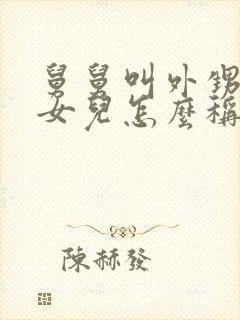 舅舅叫外甥
女兒怎麼稱
陳赫發